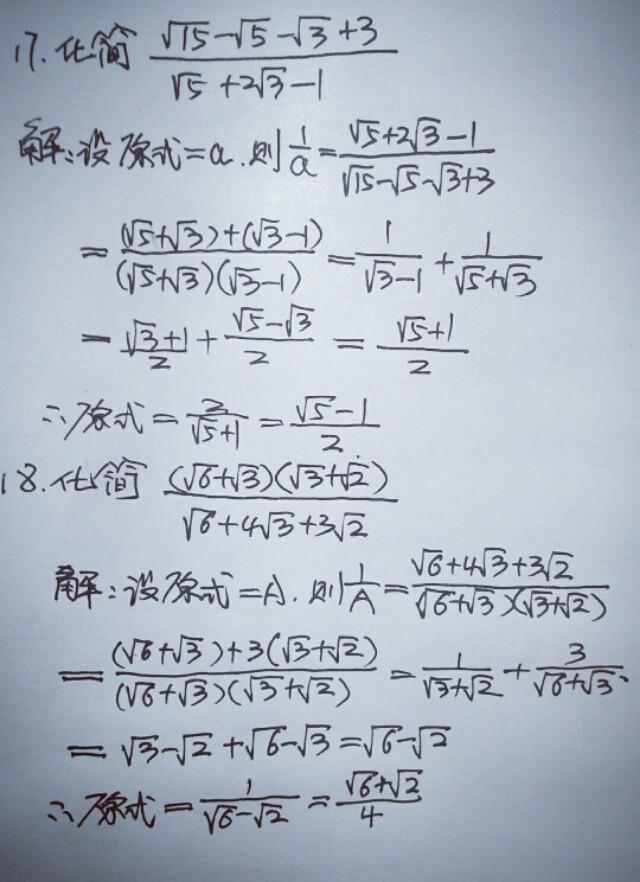 17. 化简 (√15-√5-√3+3)/(√5+2√3-1)
解:设原式=a.则1/a=(√5+2√3-1)/(√15-√5-√3+3)
=((√5+√3)+(√3-1))/((√5+√3)(√3-1))=1/(√3-1)+1/(√5+√3)
=(√3+1)/2+(√5-√3)/2=(√5+1)/2
∴原式=2/(√5+1)=(√5-1)/2.
18. 化简 ((√6+√3)(√3+√2))/(√6+4√3+3√2)
解:设原式=A.则1/A=(√6+4√3+3√2)/((√6+√3)(√3+√2))
=((√6+√3)+3(√3+√2))/((√6+√3)(√3+√2))=1/(√3+√2)+3/(√6+√3).
=√3-√2+√6-√3=√6-√2
∴原式=1/(√6-√2)=(√6+√2)/4